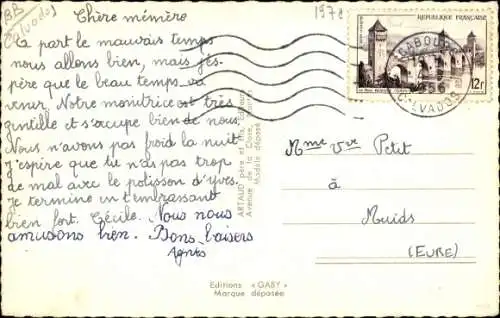 BB
Calvados
1978
Chère mémère
A part le mauvais temps
nous allons bien, mais j'es-
père que le beau temps va
venir. Notre monitrice est très
gentille et s'occupe bien de nous.
Nous n'avons pas froid la nuit
j'espire que tu n'as pas trop
de mal avec le potisson d'Yves.
Je termine en t'embrassant
bien fort. Cécile. Nous nous
amusons bien. Bons baisers
Agnès
ARTAUD père et fils, Editeurs
Avenue de la Close,
Modèle déposé
Editions « GABY »
Marque déposée
REPUBLIQUE FRANÇAISE
12F
CALVADOS
Mme Vve Petit
à
Muids
(EURE)